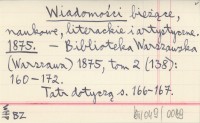 Wiadomości bieżące,
naukowe, literackie i artystyczne.
1875. – Biblioteka Warszawska
(Warszawa) 1875, tom 2 (138):
160–172.
Tatr dotyczą s. 166–167.
BZ